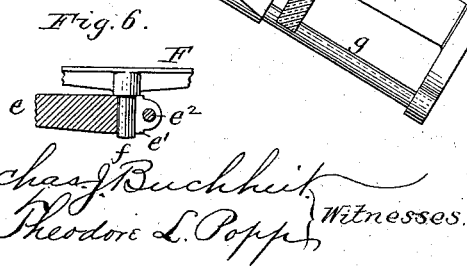 Fig. 6.
F
g
e
e²
e'
f
Chas. J. Buchheit
Theodore L. Popp
Witnesses.